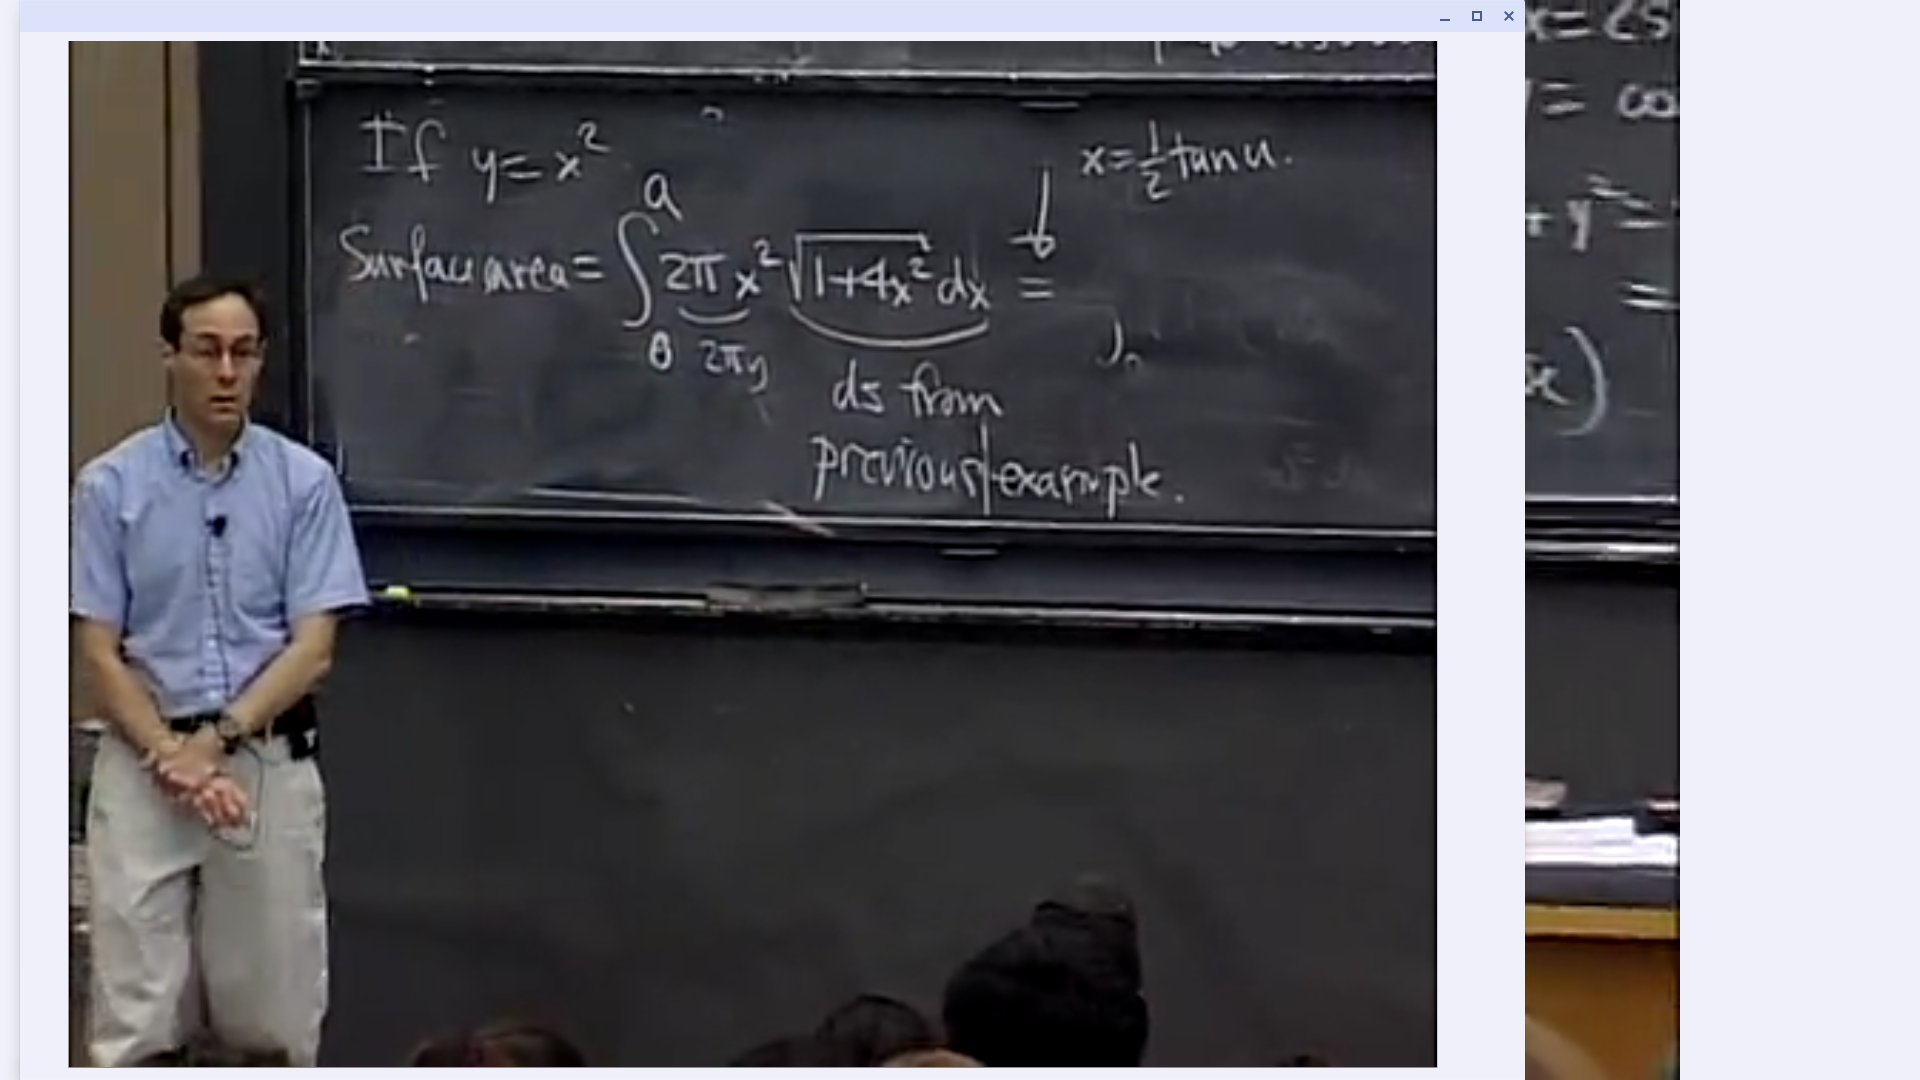 If y = x²
x = 1/2 tan u.
Surface area = ∫₀ᵃ 2π x² √(1+4x²) dx =
2πy
ds from
previous example.
y =
+ y² =
=